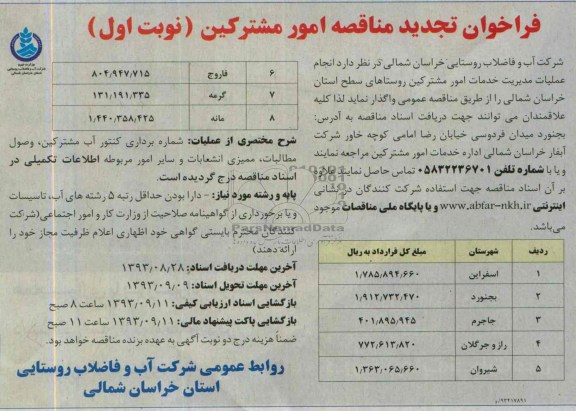 فراخوان تجدید مناقصه امور مشترکین (نوبت اول)
شرکت آب و فاضلاب روستایی خراسان شمالی در نظر دارد انجام
عملیات مدیریت خدمات امور مشترکین روستاهای سطح استان
خراسان شمالی را از طریق مناقصه عمومی واگذار نماید لذا کلیه
علاقمندان می توانند جهت دریافت اسناد مناقصه به آدرس:
بجنورد میدان فردوسی خیابان رضا امامی کوچه خاور شرکت
آبفار خراسان شمالی اداره خدمات امور مشترکین مراجعه نمایند
و یا با شماره تلفن ۰۵۸۳۲۲۳۶۷۰۱ تماس حاصل نمایند علاوه
بر آن اسناد مناقصه جهت استفاده شرکت کنندگان در نشانی
اینترنتی www.abfar-nkh.ir و یا پایگاه ملی مناقصات موجود
می‌باشد.
ردیف شهرستان مبلغ کل قرارداد به ریال
۱ اسفراین ۱/۷۸۵/۸۹۴/۶۶۰
۲ بجنورد ۱/۹۱۲/۷۳۲/۴۷۰
۳ جاجرم ۴۰۱/۸۹۵/۹۴۵
۴ راز و جرگلان ۷۷۲/۶۱۳/۸۲۰
۵ شیروان ۱/۳۶۳/۰۶۵/۶۶۰
۶ فاروج ۸۰۴/۹۴۷/۷۱۵
۷ گرمه ۱۳۱/۱۹۱/۳۳۵
۸ مانه ۱/۴۴۰/۳۵۸/۴۲۵
شرح مختصری از عملیات: شماره برداری کنتور آب مشترکین، وصول
مطالبات، ممیزی انشعابات و سایر امور مربوطه اطلاعات تکمیلی در
اسناد مناقصه درج گردیده است.
پایه و رشته مورد نیاز: - دارا بودن حداقل رتبه ۵ رشته های آب، تاسیسات
و یا برخورداری از گواهینامه صلاحیت از وزارت کار و امور اجتماعی (شرکت
کنندگان محترم بایستی گواهی خود اظهاری اعلام ظرفیت مجاز خود را
ارائه دهند)
آخرین مهلت دریافت اسناد: ۱۳۹۳/۰۸/۲۸
آخرین مهلت تحویل اسناد: ۱۳۹۳/۰۹/۰۹
بازگشایی اسناد ارزیابی کیفی: ۱۳۹۳/۰۹/۱۱ ساعت ۸ صبح
بازگشایی پاکت پیشنهاد مالی: ۱۳۹۳/۰۹/۱۱ ساعت ۱۱ صبح
ضمناً هزینه درج دو نوبت آگهی به عهده برنده مناقصه خواهد بود.
روابط عمومی شرکت آب و فاضلاب روستایی
استان خراسان شمالی
ParsNamadData